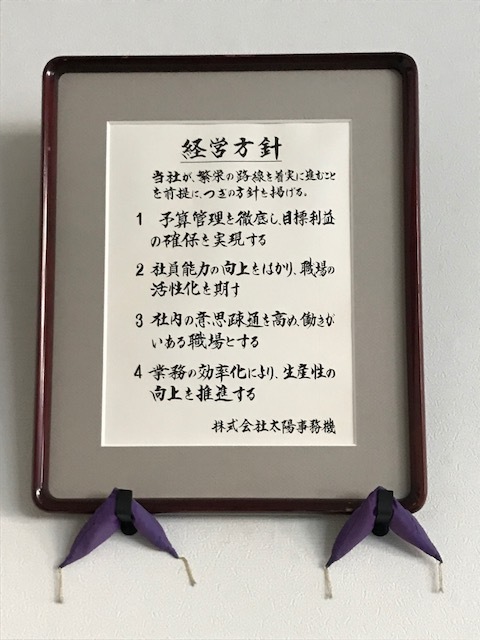 経営方針
当社が、繁栄の路線を着実に進むこと
を前提に、つぎの方針を掲げる。
1 予算管理を徹底し、目標利益
の確保を実現する
2 社員能力の向上をはかり、職場の
活性化を期す
3 社内の意思疎通を高め、働きが
いある職場とする
4 業務の効率化により、生産性の
向上を推進する
株式会社太陽事務機